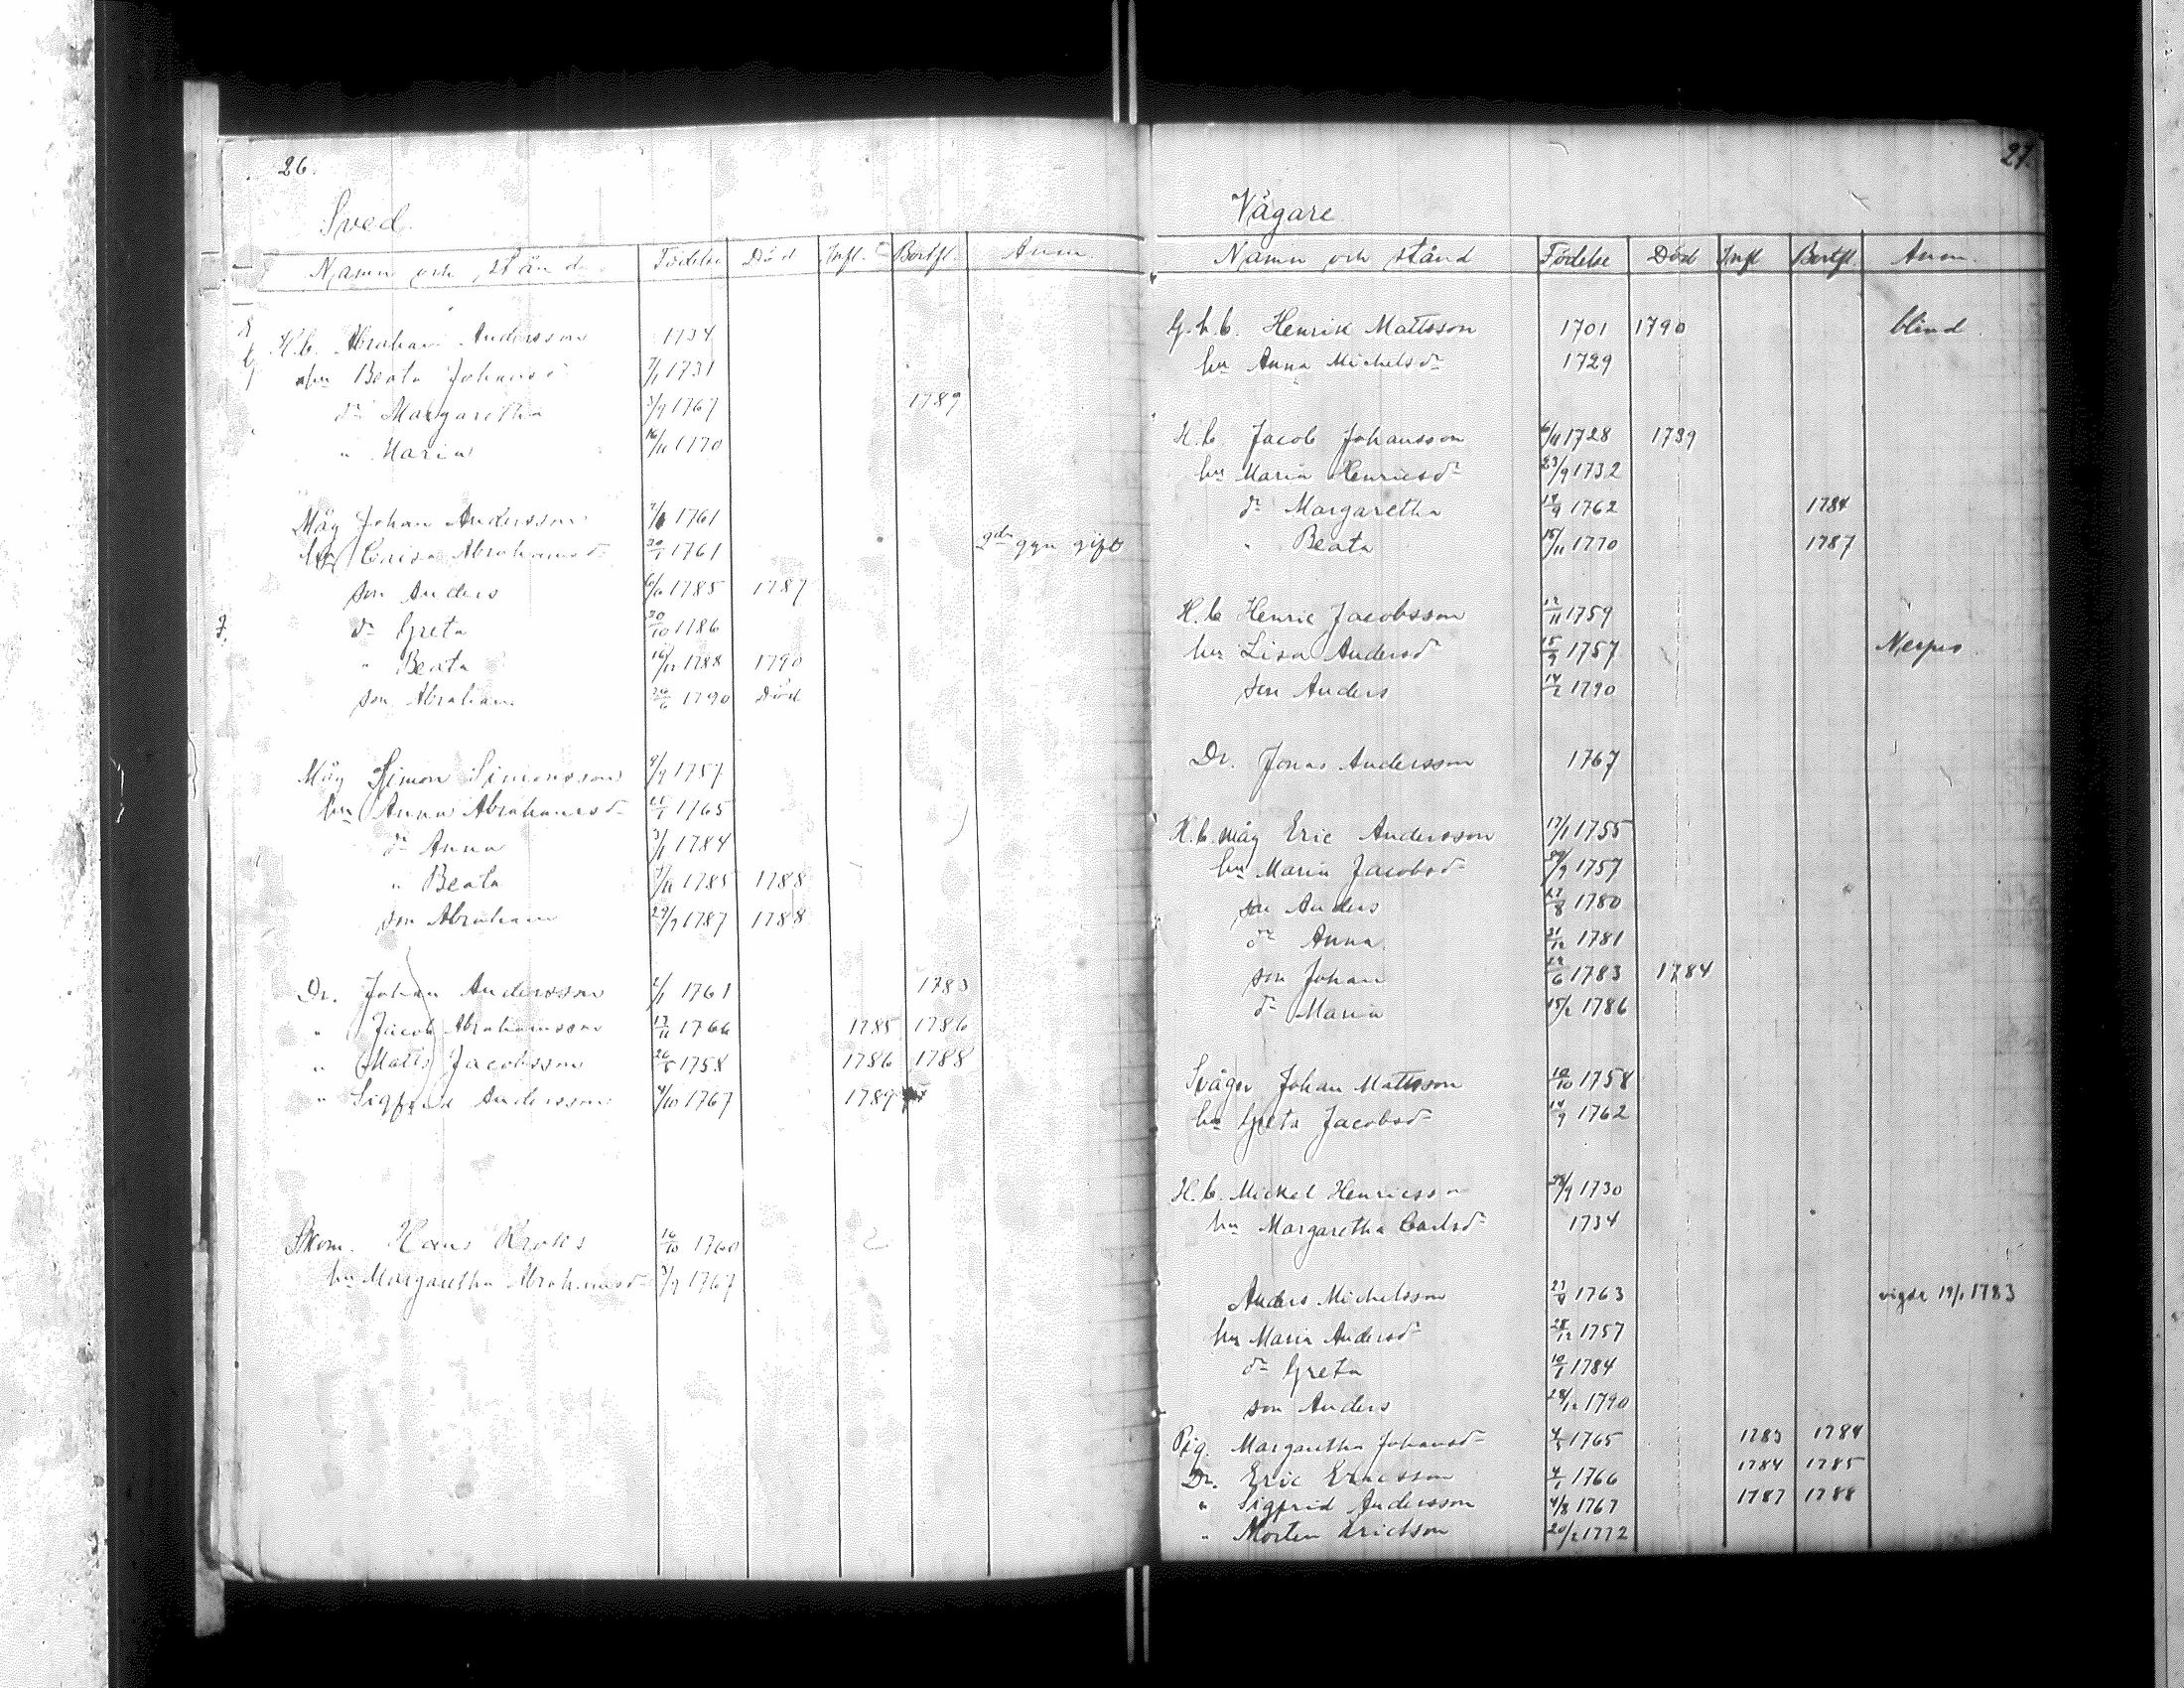 26.
Sved.
Namn och stånd Födelse Död Infl. Bortfl. Anm.
H.b. Abraham Andersson 1734
hu Beata Johansdr 7/1 1731
dr Margaretha 3/9 1767 1789
" Maria 16/11 1770
Måg Johan Andersson 1761
hu Caisa Abrahamsdr 30/1 1761 2dra ggn gift
son Anders 6/6 1785 1787
dr Greta 30/10 1786
" Beata 16/12 1788 1790
son Abraham 26/6 1790 Död
Måg Simon Simonsson 4/9 1757
hu Anna Abrahamsdr 21/1 1765
dr Anna 3/1 1784
" Beata 7/11 1785 1788
son Abraham 29/9 1787 1788
Dr. Johan Andersson 2/1 1761 1783
" Jacob Abrahamsson 17/11 1766 1785 1786
" Matts Jacobsson 26/5 1758 1786 1788
" Sigfrid Andersson 4/10 1767 1789
Skom. Hans Kroks 16/10 1760
hu Margaretha Abrahamsdr 3/9 1767
27.
Vågare
Namn och stånd Födelse Död Infl Bortfl. Anm.
G.h.b. Henrik Mattsson 1701 1790 blind.
hu Anna Michelsdr 1729
H.b. Jacob Johansson 6/11 1728 1789
hu Maria Henricsdr 23/9 1732
dr Margaretha 14/9 1762 1784
" Beata 15/11 1770 1787
H.b Henric Jacobsson 12/11 1759
hu Lisa Andersdr 15/9 1757 Nerpes
son Anders 14/2 1790
Dr. Jonas Andersson 1767
H.b. måg Eric Andersson 17/1 1755
hu Maria Jacobsdr 29/9 1757
son Anders 27/8 1780
dr Anna 21/12 1781
son Johan 12/6 1783 1784
dr Maria 15/2 1786
Svåger Johan Mattsson 10/10 1758
hu Greta Jacobsdr 14/9 1762
H.b. Mickel Henricsson 28/9 1730
hu Margaretha Carlsdr 1734
Anders Michelsson 27/9 1763 vigde 19/1 1783
hu Maria Andersdr 28/12 1757
dr Greta 10/1 1784
son Anders 28/12 1790
Pig. Margaretha Johansdr 4/5 1765 1783 1784
Dr. Eric Ericsson 4/1 1766 1784 1785
" Sigfrid Andersson 4/8 1767 1787 1788
" Morten Ericsson 20/2 1772